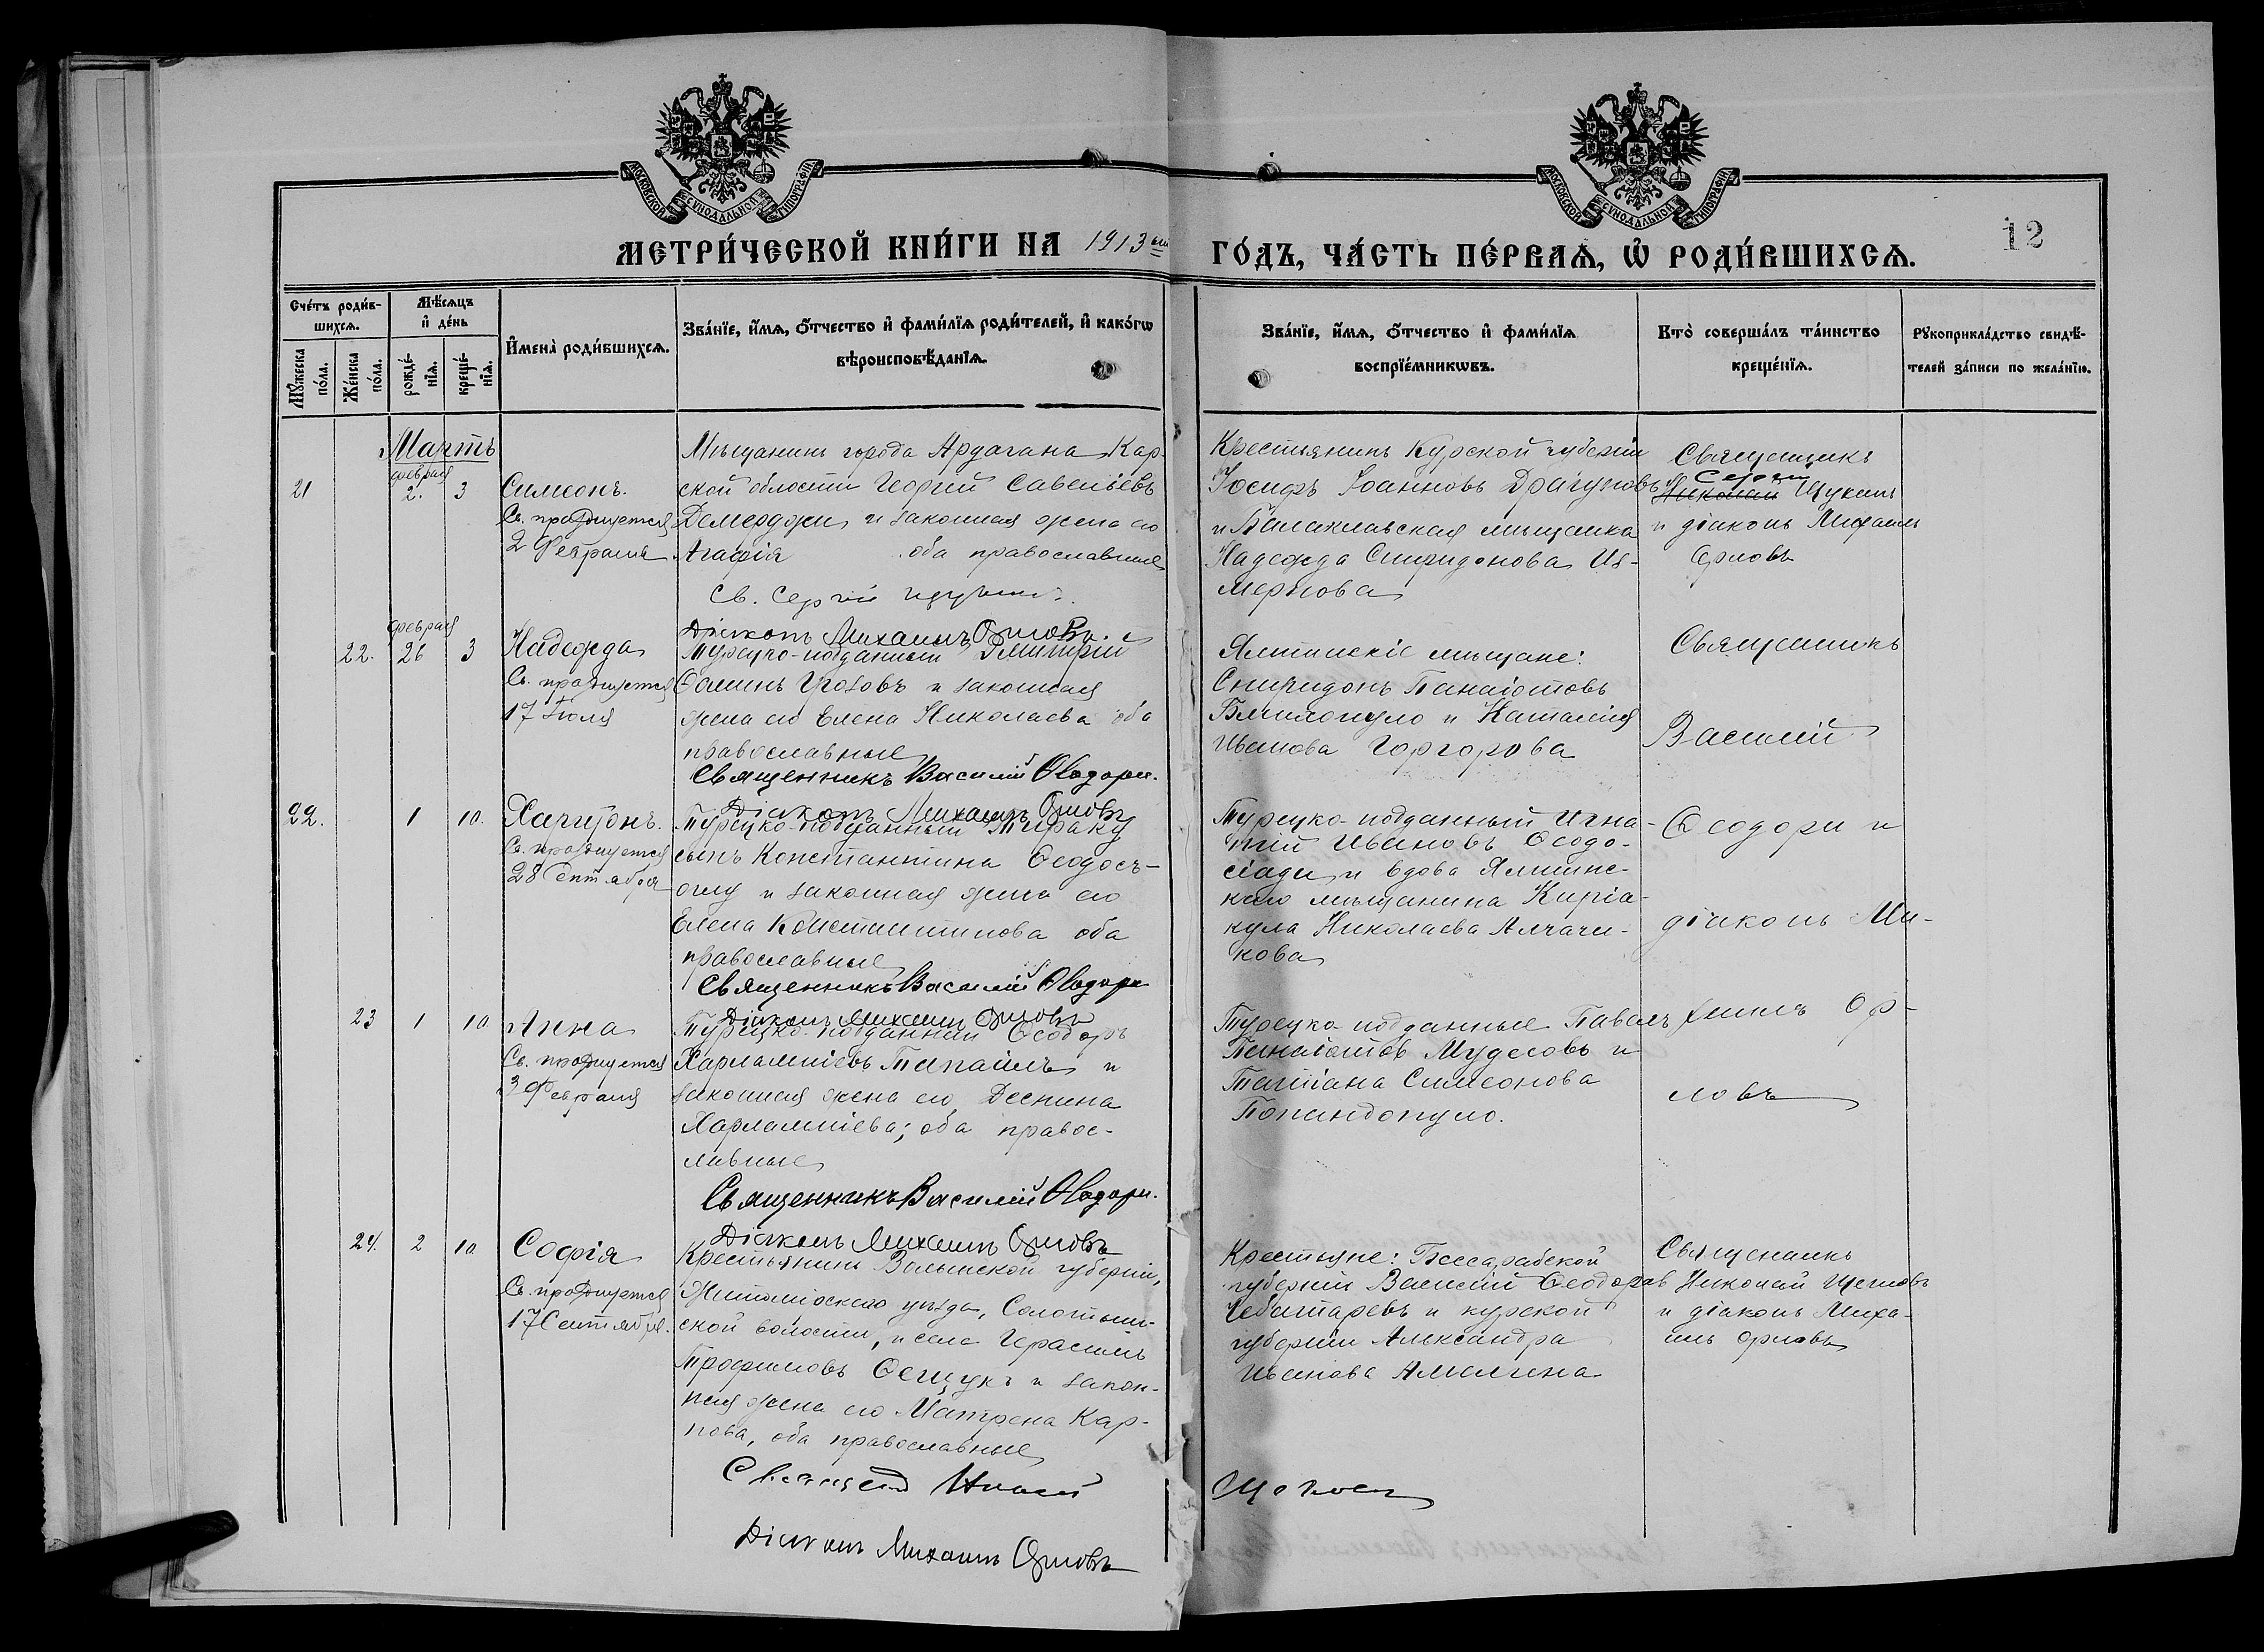 МОСКОВСКОЙ СУНОДАЛЬНОЙ ТИПОГРАФІИ
МОСКОВСКОЙ СУНОДАЛЬНОЙ ТИПОГРАФІИ
МЕТРИ́ЧЕСКОЙ КНИ́ГИ НА 1913 ГО́ДЪ, ЧА́СТЬ ПЕ́РВАѦ, Ѡ҆ РОДИ́ВШИХСѦ.
12
Сче́тъ роди́в-
шихсѧ.
Мꙋ́жеска по́ла.
Же́нска по́ла.
Мѣ́сѧцъ
и҆ де́нь
рожде́-
нїѧ.
креще́-
нїѧ.
И҆мена̀ роди́вшихсѧ.
Зва́нїе, и҆́мѧ, ѻ҆́тчество и҆ фами́лїѧ роди́телей, и҆ како́гѡ
вѣроисповѣ́данїѧ.
Зва́нїе, и҆́мѧ, ѻ҆́тчество и҆ фами́лїѧ
воспрїе́мникѡвъ.
Кто̀ соверша́лъ та́инство
креще́нїѧ.
Рꙋкоприкла́дство свидѣ́-
телей за́писи по жела́нїю.
Мартъ
21
февраля
2. 3
Симеонъ.
Св. празднуется
2 Февраля
Мѣщанинъ города Ардагана Кар-
ской области Георгій Савельевъ
Демерджи и законная жена его
Агафія оба православные
Св. Сергій Щукинъ.
Діаконъ Михаилъ Орловъ.
Крестьянинъ Курской губерніи
Іосифъ Іоанновъ Драгуновъ
и Балаклавская мѣщанка
Надежда Спиридонова Из-
мерлова
Священникъ
Сергій
Николай Щукинъ
и діаконъ Михаилъ
Орловъ
22.
февраля
26 3
Надежда
Св. празднуется
17 Іюля
Турецко-подданный Димитрій
Фоминъ Урозовъ и законная
жена его Елена Николаева оба
православные
Священникъ Василій Ѳеодори.
Діаконъ Михаилъ Орловъ
Ялтинскіе мѣщане:
Спиридонъ Панаіотовъ
и Наталія
Иванова Горгорова
Священникъ
Василій
22.
1 10.
Харитонъ.
Св. празднуется
28 Сентября
Турецко-подданный
сынъ Константина Ѳеодосъ-
оглу и законная жена его
Елена Константинова оба
православные
Священникъ Василій Ѳеодори
Діаконъ Михаилъ Орловъ
Турецко-подданный Игна-
тій Ивановъ Ѳеодо-
сіади и вдова Ялтинс-
каго мѣщанина Киріа-
кула Николаева Алчачи-
кова
Ѳеодори и
діаконъ Ми-
23
1 10
Анна
Св. празднуется
3 Февраля
Турецко-подданный Ѳеодоръ
Харлампіевъ и
законная жена его Деспина
Харлампіева; оба правос-
лавные
Священникъ Василій Ѳеодори.
Діаконъ Михаилъ Орловъ
Турецко-подданные Павелъ
Панаіотов Мудесовъ и
Татіана Симеонова
Попандопуло.
хаилъ Ор-
ловъ
24.
2 10
Софія
Св. празднуется
17 Сентября.
Крестьянинъ Волынской губерніи,
Житомірскаго уѣзда,
ской волости, и села Герасимъ
Трофимовъ Осщукъ и закон-
ная жена его Матрена Кар-
пова, оба православные
Діаконъ Михаилъ Орловъ
Крестьяне: Бессарабской
губерніи Василій Ѳеодоров
Чеботаревъ и курской
губерніи Александра
Иванова Амелина
Священникъ
Николай Щегловъ
и діаконъ Миха-
илъ Орловъ